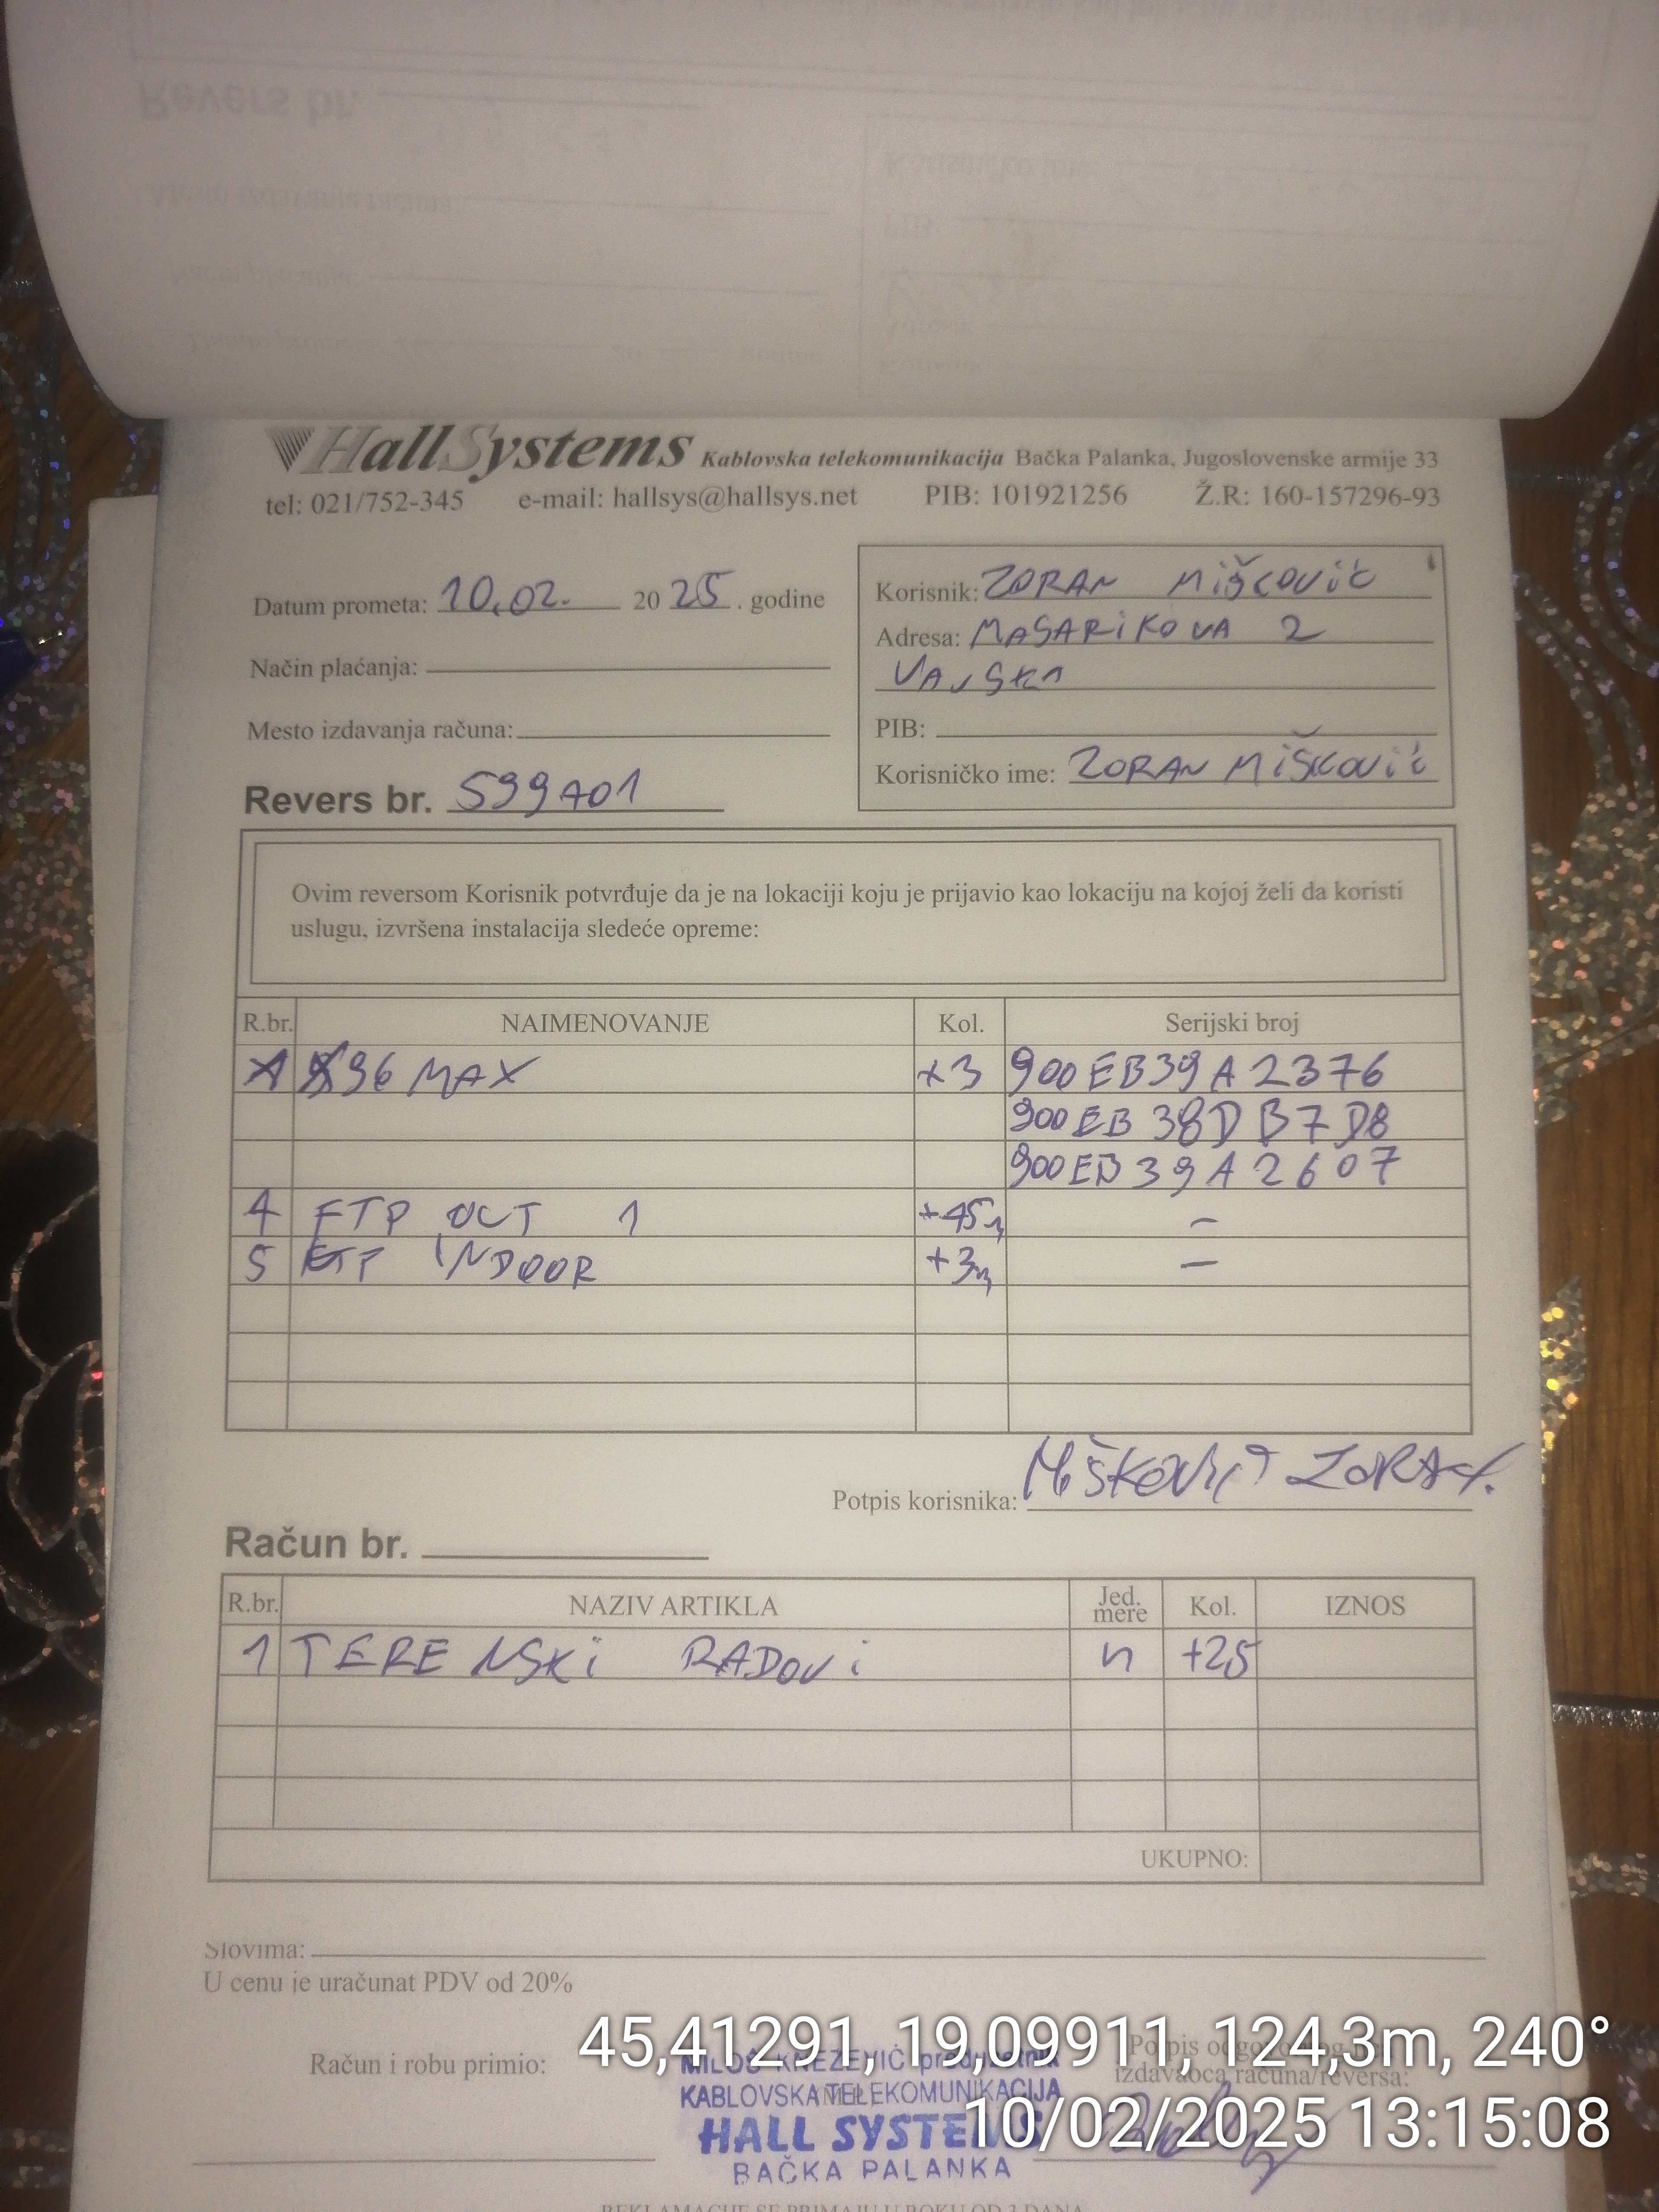 HallSystems Kablovska telekomunikacija Bačka Palanka, Jugoslovenske armije 33
tel: 021/752-345 e-mail: hallsys@hallsys.net PIB: 101921256 Ž.R: 160-157296-93
Datum prometa: 10.02. 20 25. godine
Način plaćanja:
Mesto izdavanja računa:
Revers br. 599701
Korisnik: ZORAN MiŠCOViĆ
Adresa: MASARiKOVA 2
VAJSKA
PIB:
Korisničko ime: ZORAN MiŠKOViĆ
Ovim reversom Korisnik potvrđuje da je na lokaciji koju je prijavio kao lokaciju na kojoj želi da koristi
uslugu, izvršena instalacija sledeće opreme:
R.br. NAIMENOVANJE Kol. Serijski broj
X96 MAX +3 900EB39A2376
900EB38DB7D8
900EB39A2607
4 FTP OUT 1 +45m –
5 FTP INDOOR +3m –
Potpis korisnika: MiŠKOViĆ ZORAN.
Račun br.
R.br. NAZIV ARTIKLA Jed. mere Kol. IZNOS
1 TERENSKi RADOVi n +25
UKUPNO:
Slovima:
U cenu je uračunat PDV od 20%
45,41291, 19,09911, 124,3m, 240°
Račun i robu primio:
MILOŠ KNEŽEVIĆ preduzetnik
KABLOVSKA TELEKOMUNIKACIJA
HALL SYSTEMS
BAČKA PALANKA
Potpis odgovornog
izdavaoca računa/reversa:
10/02/2025 13:15:08
REKLAMACIJE SE PRIMAJU U ROKU OD 3 DANA